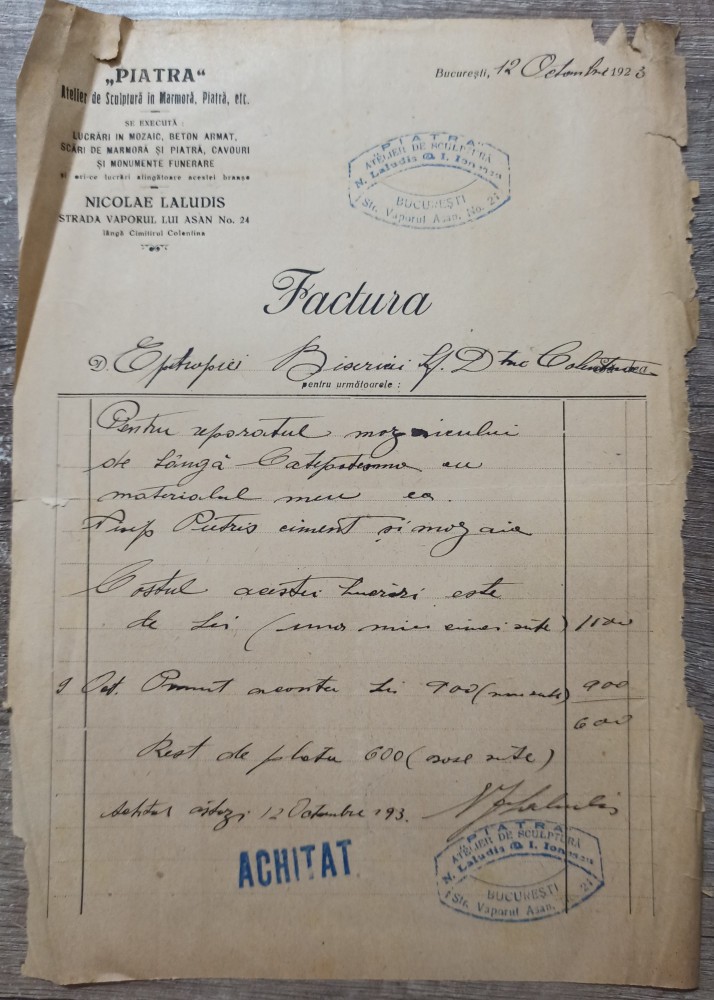 „PIATRA“
Atelier de Sculptură in Marmoră, Piatră, etc.
SE EXECUTĂ:
LUCRĂRI IN MOZAIC, BETON ARMAT,
SCĂRI DE MARMORĂ ȘI PIATRĂ, CAVOURI
ȘI MONUMENTE FUNERARE
și ori-ce lucrări atingătoare acestei branșe
NICOLAE LALUDIS
STRADA VAPORUL LUI ASAN No. 24
lângă Cimitirul Colentina
București, 12 Octombrie 1923
"PIATRA"
ATELIER DE SCULPTURĂ
N. Laludis & I. Ionman
BUCUREȘTI
Str. Vaporul Asan, No. 24
Factura
D. Epitropiei Bisericii Sf. D-tru Colentina
pentru următoarele:
Pentru reparatul mozaicului
de lângă cu
materialul meu ca
Timp Pietris ciment și mozaic
Costul acestei lucrări este
de Lei (una mie cinci sute) 1500
9 Oct. Primit acontu Lei 900 (nouă sute) 900
600
Rest de plata 600 (șase sute)
Achitat astăzi 12 Octombrie 193.
N Laludis
ACHITAT
"PIATRA"
ATELIER DE SCULPTURĂ
N. Laludis & I. Ionman
BUCUREȘTI
Str. Vaporul Asan, No. 24